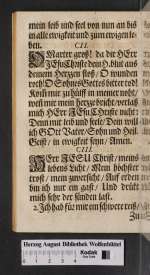 mein leib und seel von nun an bis
in alle ewigkeit und zum ewigen le-
ben.
CII.
O Marter groß! da dir HErr
JEsu Christ dein H. blut aus
deinem Hertzen floß, O wunden
roth! O Sohn GOttes
Komm mir zu hülff in meiner noth,
weil mir mein hertze bricht, verlaß
mich HErr JEsu Christe nicht:
Denn mit leib und seele, Dein will
ich GOtt Vater, Sohn und Heil.
Geist, in ewigkeit seyn, Amen.
CIII.
HErr JESU Christ, meins
lebens Licht, Mein höchster
trost, mein zuversicht, Auf erden
bin ich nur ein gast, Und drückt
mich sehr der sünden last.
2. Ich hab für mir ein schwere reis,
Zu
Herzog August Bibliothek Wolfenbüttel
Kodak